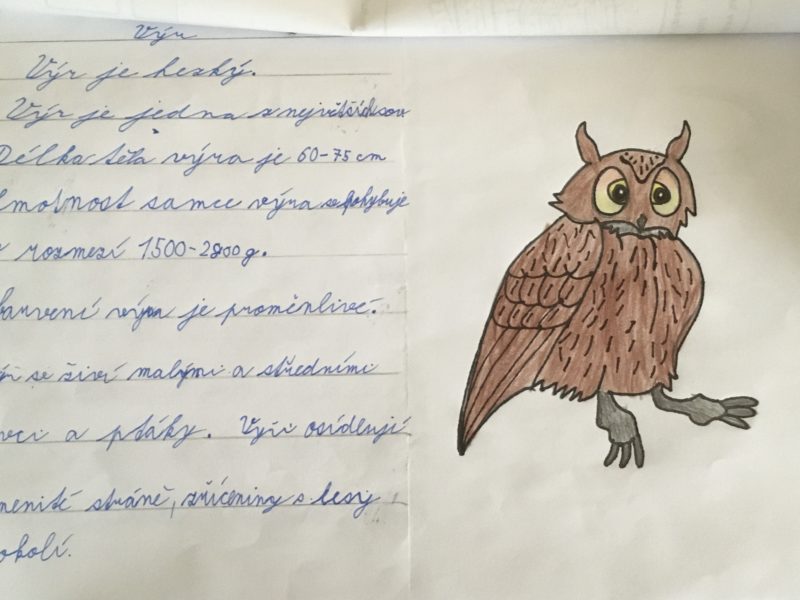 Výr
Výr je hezký.
Výr je jedna z největších sov
Délka těla výra je 60-75 cm
hmotnost samce výra se pohybuje
v rozmezí 1500-2800 g.
barvení výra je proměnlivé.
se živí malými a středními
vci a ptáky. Výři osídlují
menité stráně, zříceniny s lesy
okolí.